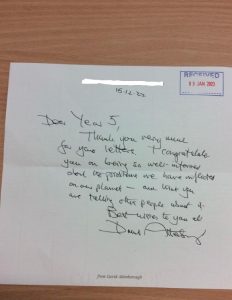 RECEIVED
03 JAN 2023
15.12.22
Dear Year 5,
Thank you very much
for your letters. I congratulate
you on being so well-informed
about the problems we have inflicted
on our planet – and that you
are telling other people about it.
Best wishes to you all
David Attenborough
from David Attenborough